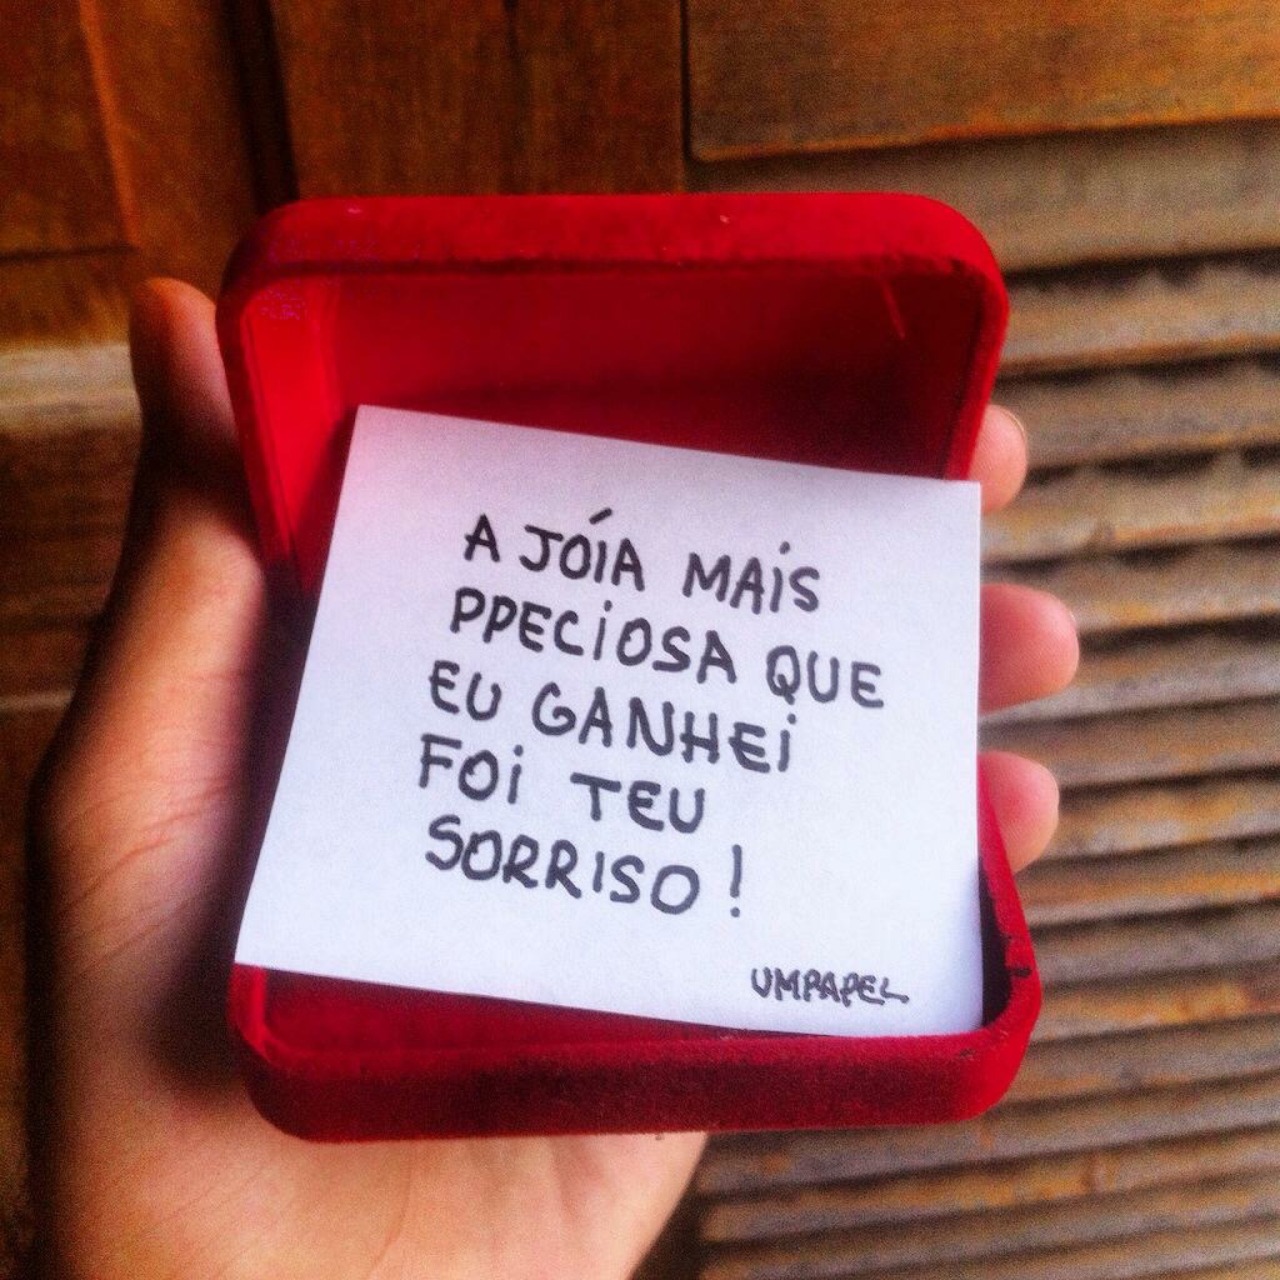 A JÓIA MAIS
PPECIOSA QUE
EU GANHEI
FOI TEU
SORRISO!
UMPAPEL